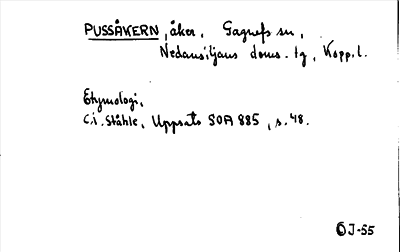 PUSSÅKERN, åker, Gagnefs sn,
Nedansiljans doms. tg, Kopp. l.
Etymologi,
C.i. Ståhle, Uppsats SOA 885, s. 48.
ÖJ-55